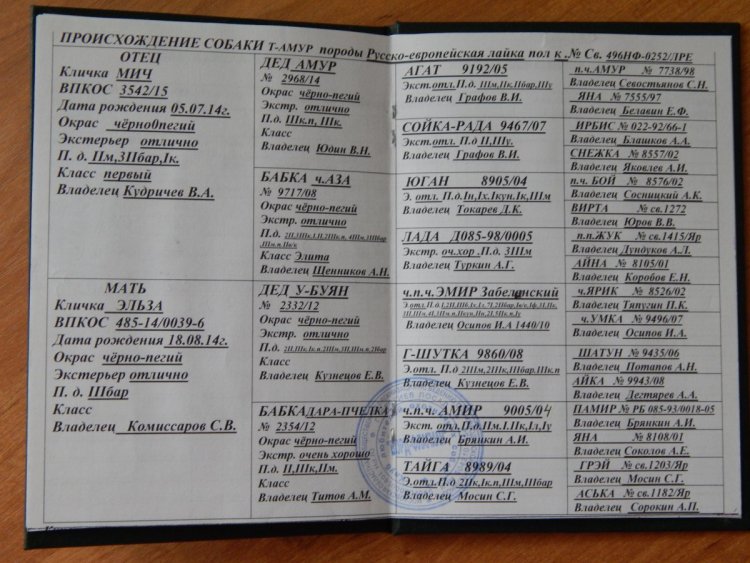 ПРОИСХОЖДЕНИЕ СОБАКИ Т-АМУР породы Русско-европейская лайка пол к .№ Св. 496НФ-0252/ЛРЕ
ОТЕЦ
Кличка МИЧ
ВПКОС 3542/15
Дата рождения 05.07.14г.
Окрас чёрно0пегий
Экстерьер отлично
П. д. IIм,3IIбар,Iк.
Класс первый
Владелец Кудричев В.А.
МАТЬ
Кличка ЭЛЬЗА
ВПКОС 485-14/0039-6
Дата рождения 18.08.14г.
Окрас чёрно-пегий
Экстерьер отлично
П. д. IIIбар
Класс
Владелец Комиссаров С.В.
ДЕД АМУР
№ 2968/14
Окрас чёрно-пегий
Экстр. отлично
П.д. IIк.п, IIIк.
Класс
Владелец Юдин В.Н.
БАБКА ч.АЗА
№ 9717/08
Окрас чёрно-пегий
Экстр. отлично
П.д.
Класс Элита
Владелец Щенников А.Н.
ДЕД У-БУЯН
№ 2332/12
Окрас чёрно-пегий
Экстр. отлично
П.д.
Класс
Владелец Кузнецов Е.В.
БАБКА ДАРА-ПЧЕЛКА
№ 2354/12
Окрас чёрно-пегий
Экстр. очень хорошо
П.д. II,IIIк,IIм.
Класс
Владелец Титов А.М.
АГАТ 9192/05
Экст.отл.П.д. IIIм,IIк,IIбар,IIу
Владелец Графов В.И.
СОЙКА-РАДА 9467/07
Экст.отл. П.д II,IIIу.
Владелец Графов В.И.
ЮГАН 8905/04
Э. отл. П.д.Iн,Iх.Iкун.Iк,IIIм
Владелец Токарев Д.К.
ЛАДА Д085-98/0005
Экст. оч.хор .П.д. 3IIIм
Владелец Туркин А.Г.
ч.п.ч.ЭМИР Забелинский
Э.отл.П.д
Владелец Осипов И.А 1440/10
Г-ШУТКА 9860/08
Э.отл. П.д 2IIм,2IIIк,IIбар,IIIк.п
Владелец Кузнецов Е.В.
ч.п.ч. АМИР 9005/04
Экст. отл.П.д.IIм.I.IIк,Iл,Iу
Владелец Брянкин А.И.
ТАЙГА 8989/04
Э.отл.П.д 2IIк,Iк.п,IIм,IIIбар
Владелец Мосин С.Г.
п.ч.АМУР № 7738/98
Владелец Севостьянов С.Н.
ЯНА № 7555/97
Владелец Белавин Е.Ф.
ИРБИС № 022-92/66-1
Владелец Блашков А.А.
СНЕЖКА № 8557/02
Владелец Яковлев А.И.
п.ч. БОЙ № 8576/02
Владелец Сосницкий А.К.
ВИРТА № св.1272
Владелец Юров В.В.
п.п.ЖУК № св.1415/Яр
Владелец Дундуков А.Л.
АЙНА № 8105/01
Владелец Коробов Е.Н.
ч.ЯРИК № 8526/02
Владелец Тяпугин П.К.
ч.УМКА № 9496/07
Владелец Осипов И.А.
ШАТУН № 9435/06
Владелец Потапов А.Н.
АЙКА № 9943/08
Владелец Дегтярев А.А.
ПАМИР № РБ 085-93/0018-05
Владелец Брянкин А.И.
ЯНА № 8108/01
Владелец Соколов А.Е.
ГРЭЙ № св.1203/Яр
Владелец Мосин С.Г.
АСЬКА № св.1182/Яр
Владелец Сорокин А.П.